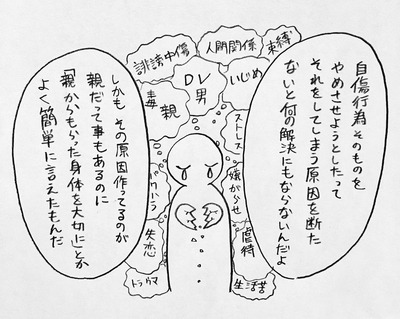 自傷行為そのものを
やめさせようとしたって
それをしてしまう原因を断た
ないと何の解決にもならないんだよ
束縛
人間関係
誹謗中傷
いじめ
DV
男
毒
親
ストレス
嫌がらせ
パワハラ
虐待
失恋
トラウマ
生活苦
しかも その原因作ってるのが
親だって事もあるのに
「親からもらった身体を大切に」とか
よく簡単に言えたもんだ